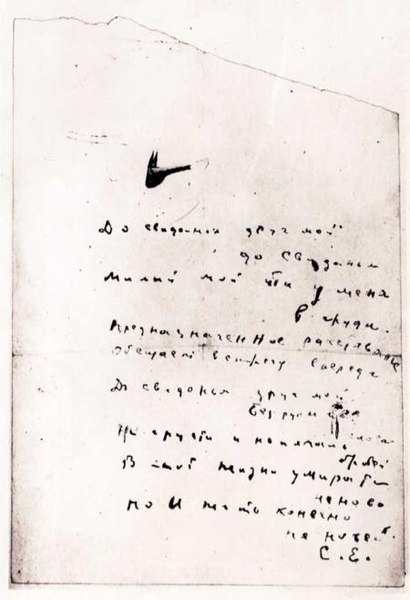 До свиданья друг мой
до свиданья
Милый мой ты у меня
в груди.
Предназначенное расставанье
Обещает встречу впереди
До свиданья друг мой
без руки и слова
Не грусти и не печаль
бровей
В этой жизни умирать
не ново
но и жить конечно
не новей.
С.Е.